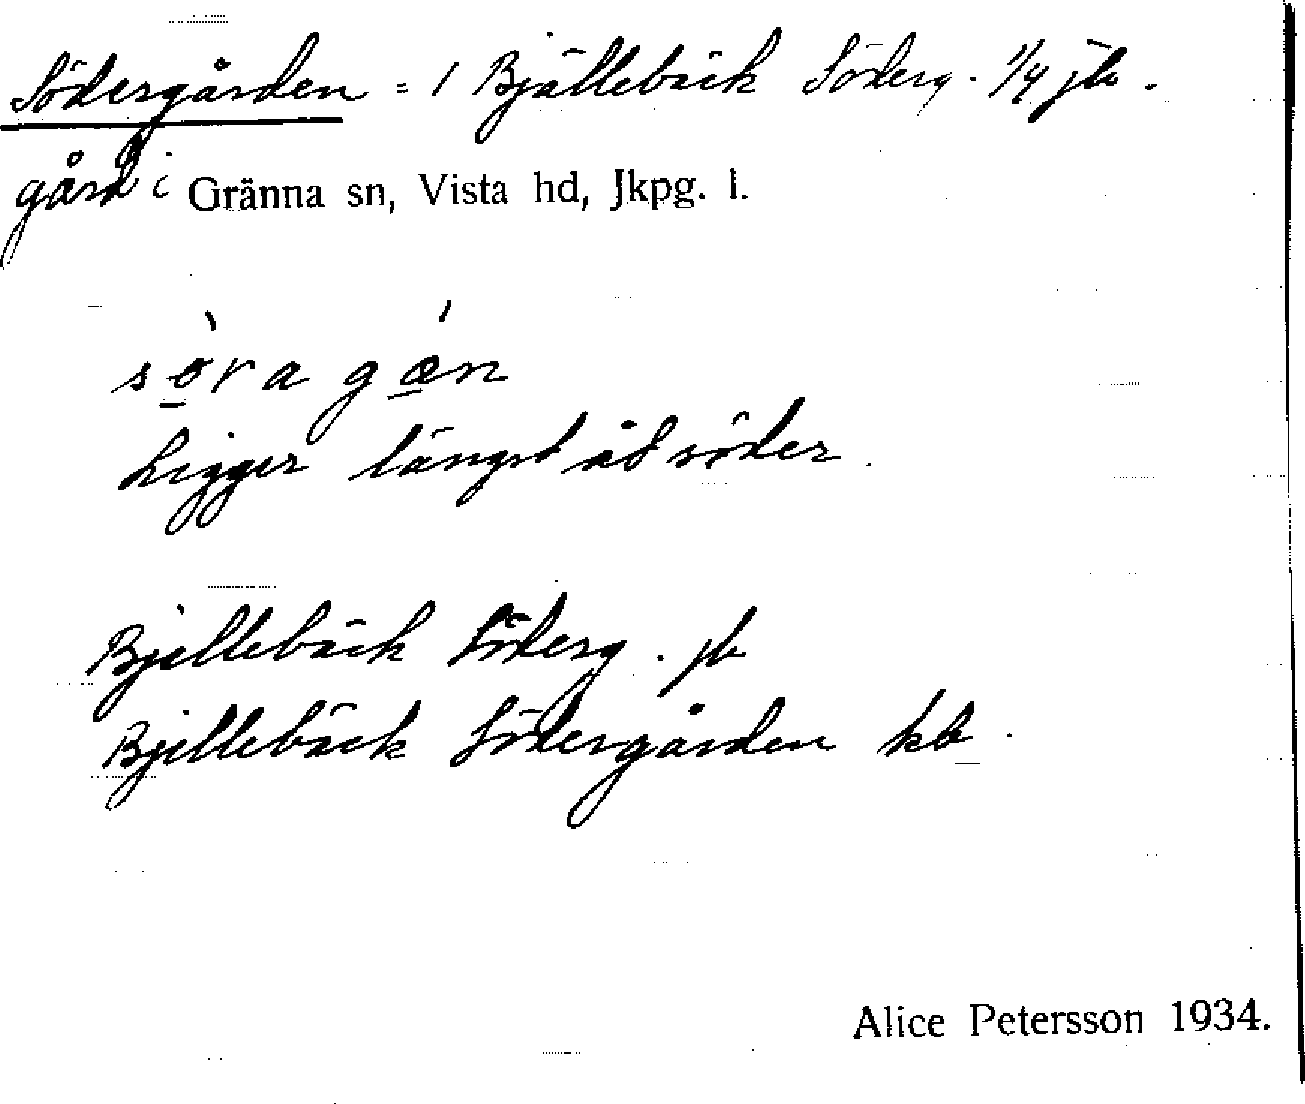 Södergården = 1 Bjällebäck Söderg. 1/4 jb.
gård i Gränna sn, Vista hd, Jkpg. l.
sö̀ra gǽn
Ligger längst åt söder.
Bjellebäck Söderg. jb
Bjellebäck Södergården kb.
Alice Petersson 1934.